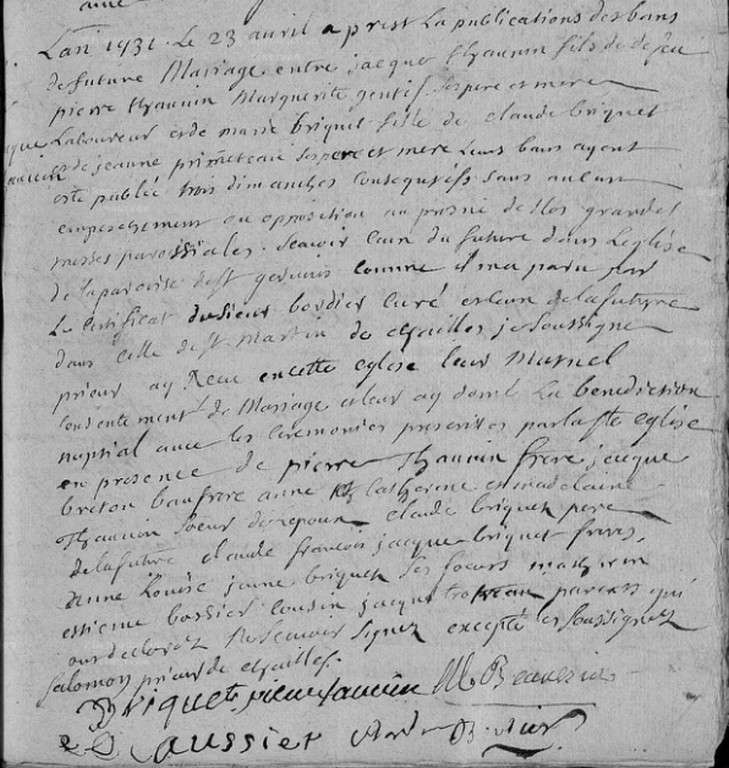 L'an 1731. Le 23 avril aprest La publications des bans
de future Mariage entre jacque thauuin fils de defeu
pierre thauuin Marguerite gentif ses pere et mere
que Laboureur et de marie briquet fille de claude briquet
et de jeanne primeteau ses pere et mere Leurs bans ayent
este publié trois dimanches consequtifs sans aucun
empeschement ou opposition au prosne de Nos grandes
messes paroissiales. scavoir l'un du future dans Leglise
de la paroise de st gervais comme il ma paru par
Le Certificat du sieur bordier curé et l'un de la future
dans celle de st martin de chailles je soussigné
prieur ay Receu en cette eglise leur Mutuel
consentement de Mariage et leur ay donné La benediction
nuptial avec les ceremonies prescrites par la ste eglise
en presence de pierre Thauuin frere jacque
breton baufrere anne catherine et madelaine
Thauuin soeur de lepoux claude briquet pere
de la future claude francois jacque briquet freres,
anne Louise jeanne briquet ses soeurs mathurin
estienne bordier cousin jacque parents qui
ont declarez Ne scavoir signer excepté les soussignez
Salomon prieur de chailles.
Briquet pierre tauuin
Saussier